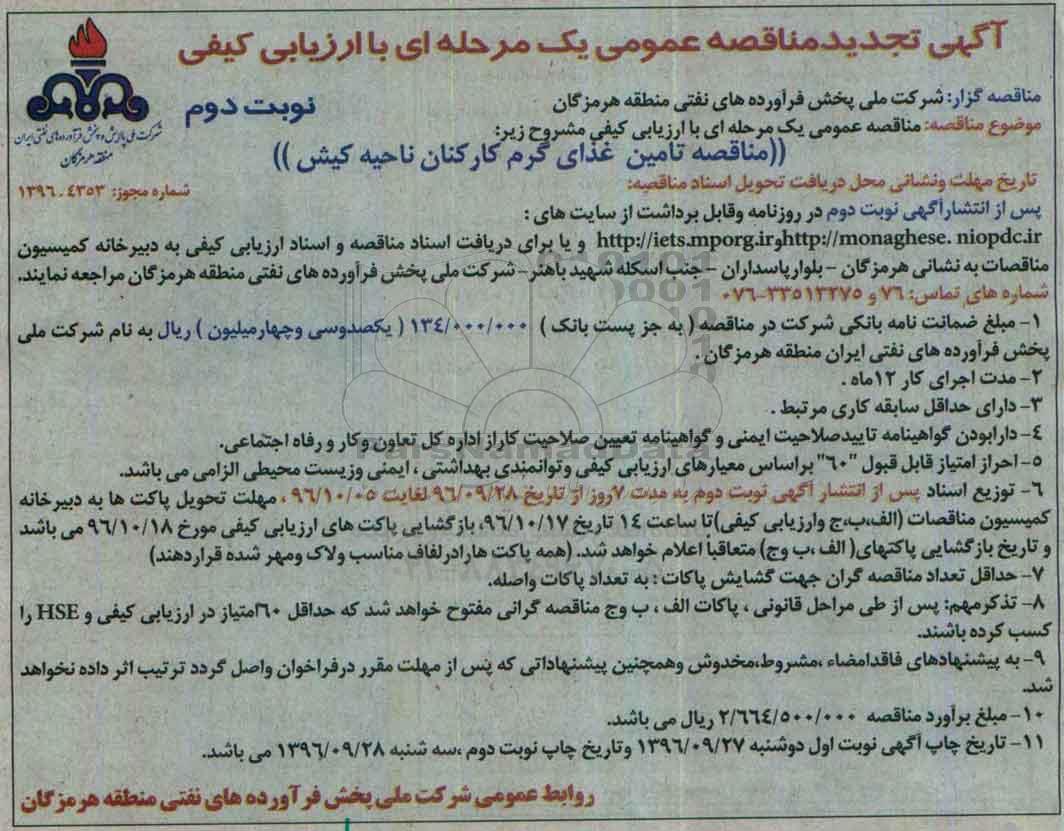 آگهی تجدیدمناقصه عمومی یک مرحله ای با ارزیابی کیفی
نوبت دوم
شرکت ملی پالایش و پخش فرآورده های نفتی ایران
منطقه هرمزگان
مناقصه گزار: شرکت ملی پخش فرآورده های نفتی منطقه هرمزگان
موضوع مناقصه: مناقصه عمومی یک مرحله ای با ارزیابی کیفی مشروح زیر:
((مناقصه تامین غذای گرم کارکنان ناحیه کیش ))
شماره مجوز: ١٣٩٦.٤٣٥٣
تاریخ مهلت ونشانی محل دریافت تحویل اسناد مناقصه:
پس از انتشارآگهی نوبت دوم در روزنامه وقابل برداشت از سایت های :
http://monaghese. niopdc.irوhttp://iets.mporg.ir و یا برای دریافت اسناد مناقصه و اسناد ارزیابی کیفی به دبیرخانه کمیسیون
مناقصات به نشانی هرمزگان - بلوارپاسداران - جنب اسکله شهید باهنر- شرکت ملی پخش فرآورده های نفتی منطقه هرمزگان مراجعه نمایند.
شماره های تماس: ٧٦ و ٣٣٥١٣٢٧٥-٠٧٦
١- مبلغ ضمانت نامه بانکی شرکت در مناقصه ( به جز پست بانک ) ١٣٤/٠٠٠/٠٠٠ ( یکصدوسی وچهارمیلیون ) ریال به نام شرکت ملی
پخش فرآورده های نفتی ایران منطقه هرمزگان .
٢- مدت اجرای کار ١٢ماه .
٣- دارای حداقل سابقه کاری مرتبط .
٤- دارابودن گواهینامه تاییدصلاحیت ایمنی و گواهینامه تعیین صلاحیت کاراز اداره کل تعاون وکار و رفاه اجتماعی.
٥- احراز امتیاز قابل قبول "٦٠" براساس معیارهای ارزیابی کیفی وتوانمندی بهداشتی ، ایمنی وزیست محیطی الزامی می باشد.
٦- توزیع اسناد پس از انتشار آگهی نوبت دوم به مدت ٧روز از تاریخ ٩٦/٠٩/٢٨ لغایت ٩٦/١٠/٠٥ ، مهلت تحویل پاکت ها به دبیرخانه
کمیسیون مناقصات (الف،ب،ج وارزیابی کیفی)تا ساعت ١٤ تاریخ ٩٦/١٠/١٧، بازگشایی پاکت های ارزیابی کیفی مورخ ٩٦/١٠/١٨ می باشد
و تاریخ بازگشایی پاکتهای( الف ،ب وج) متعاقباً اعلام خواهد شد. (همه پاکت هارادرلفاف مناسب ولاک ومهر شده قراردهند)
٧- حداقل تعداد مناقصه گران جهت گشایش پاکات : به تعداد پاکات واصله.
٨- تذکرمهم: پس از طی مراحل قانونی ، پاکات الف ، ب وج مناقصه گرانی مفتوح خواهد شد که حداقل ٦٠امتیاز در ارزیابی کیفی و HSE را
کسب کرده باشند.
٩- به پیشنهادهای فاقدامضاء ،مشروط،مخدوش وهمچنین پیشنهاداتی که پس از مهلت مقرر درفراخوان واصل گردد ترتیب اثر داده نخواهد
شد.
١٠- مبلغ برآورد مناقصه ٢/٦٦٤/٥٠٠/٠٠٠ ریال می باشد.
١١- تاریخ چاپ آگهی نوبت اول دوشنبه ١٣٩٦/٠٩/٢٧ وتاریخ چاپ نوبت دوم ،سه شنبه ١٣٩٦/٠٩/٢٨ می باشد.
روابط عمومی شرکت ملی پخش فرآورده های نفتی منطقه هرمزگان
ParsNamadData